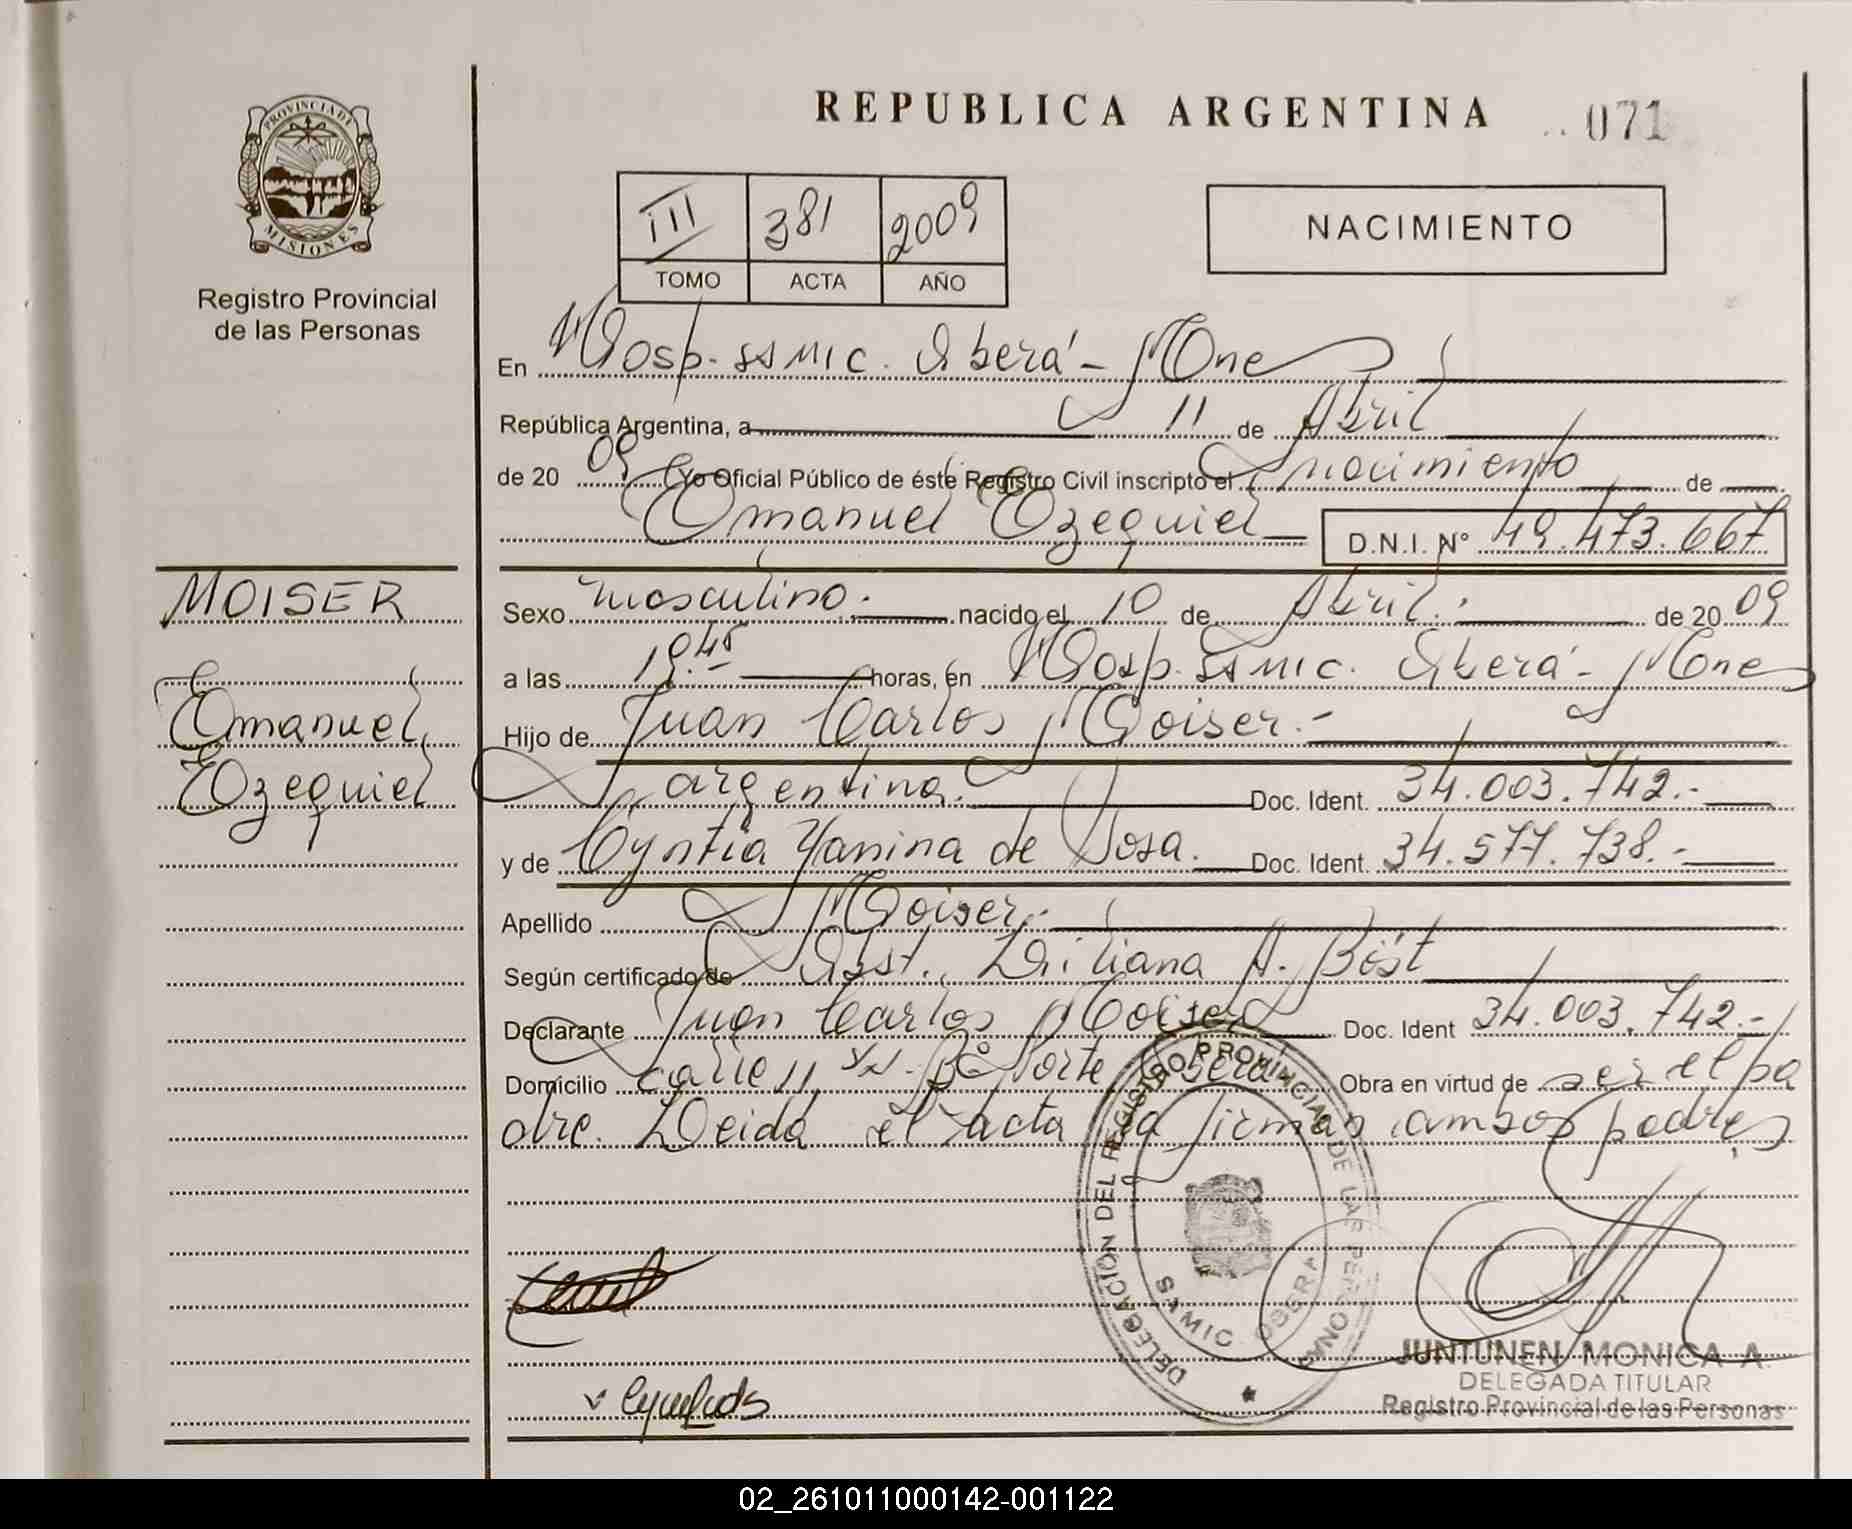 REPUBLICA ARGENTINA
071
PROVINCIA DE
MISIONES
Registro Provincial
de las Personas
III 381 2009
TOMO ACTA AÑO
NACIMIENTO
En Hosp. SAMIC. Oberá - Mnes
República Argentina, a 11 de Abril
de 20 09 Yo Oficial Público de éste Registro Civil inscripto el nacimiento de
Emanuel Ezequiel D.N.I. Nº 49.473.667
MOISER
Emanuel
Ezequiel
Sexo masculino.- nacido el 10 de Abril.- de 20 09
a las 19.45 horas, en Hosp. SAMIC. Oberá - Mnes
Hijo de Juan Carlos Moiser.-
argentina.- Doc. Ident. 34.003.742.-
y de Cyntia Yanina de Sosa. Doc. Ident. 34.577.738.-
Apellido Moiser.-
Según certificado de Obst. Liliana A. Böst
Declarante Juan Carlos Moiser Doc. Ident 34.003.742.-
Domicilio calle 11 s/n. Bº Norte Oberá Obra en virtud de ser el pa
dre. Leida el acta la firman ambos padres
DELEGACION DEL REGISTRO PROVINCIAL DE LAS PERSONAS
SAMIC OBERA
JUNTUNEN MONICA A.
DELEGADA TITULAR
Registro Provincial de las Personas
02_261011000142-001122